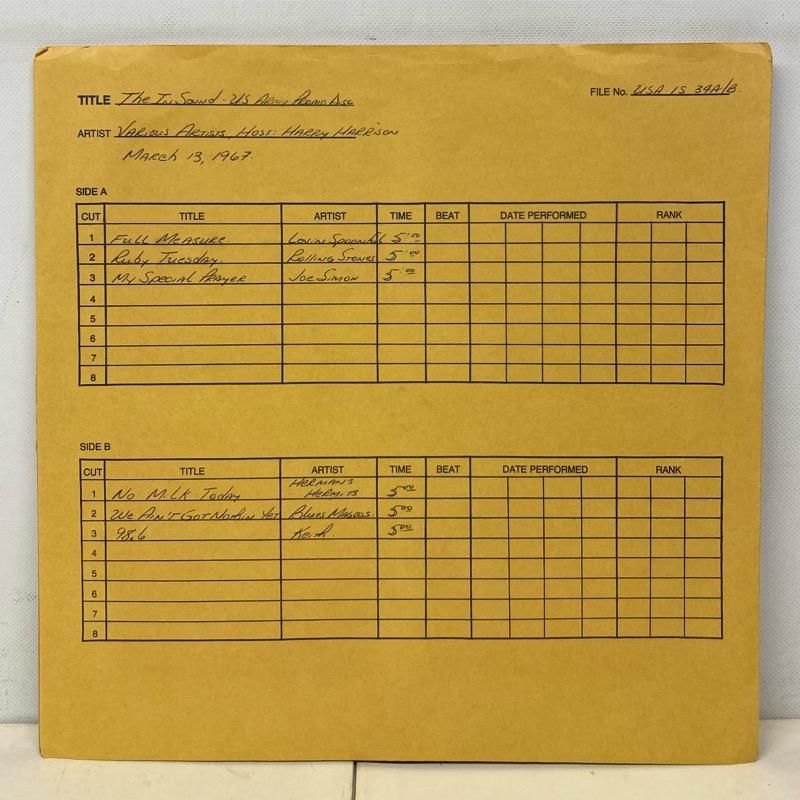 TITLE The In Sound - US Army Promo Disc
FILE No. USA IS 39A/B.
ARTIST Various Artists, Host: Harry Harrison
March 13, 1967.
SIDE A
CUT TITLE ARTIST TIME BEAT DATE PERFORMED RANK
1 Full Measure Lovin Spoonful 5:00
2 Ruby Tuesday. Rolling Stones 5:00
3 My Special Prayer Joe Simon 5:00
4
5
6
7
8
SIDE B
CUT TITLE ARTIST TIME BEAT DATE PERFORMED RANK
1 No Milk Today Herman's Hermits 5:00
2 We Ain't Got Nothin Yet Blues Magoos 5:00
3 98.6 Keith. 5:00
4
5
6
7
8